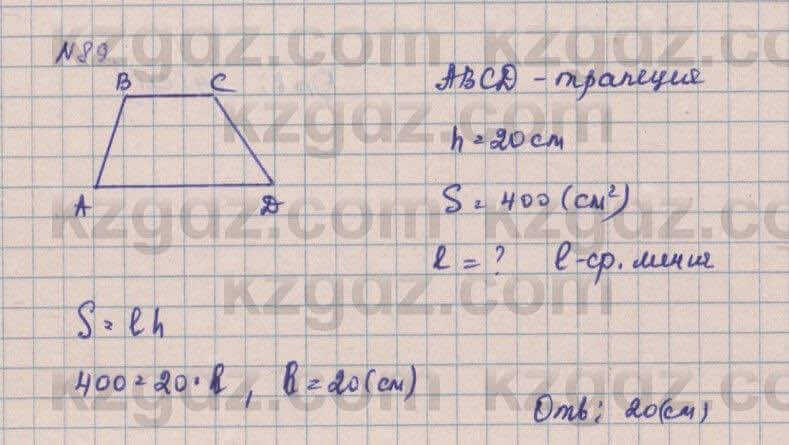 N89
B C
A D
ABCD - трапеция
h = 20 см
S = 400 (см²)
l = ? l - ср. линия
S = lh
400 = 20 · l , l = 20 (см)
Отв: 20 (см)
kzgdz.com kzgdz.com
kzgdz.com
kzgdz.com kzgdz.com
kzgdz.com
kzgdz.com kzgdz.com